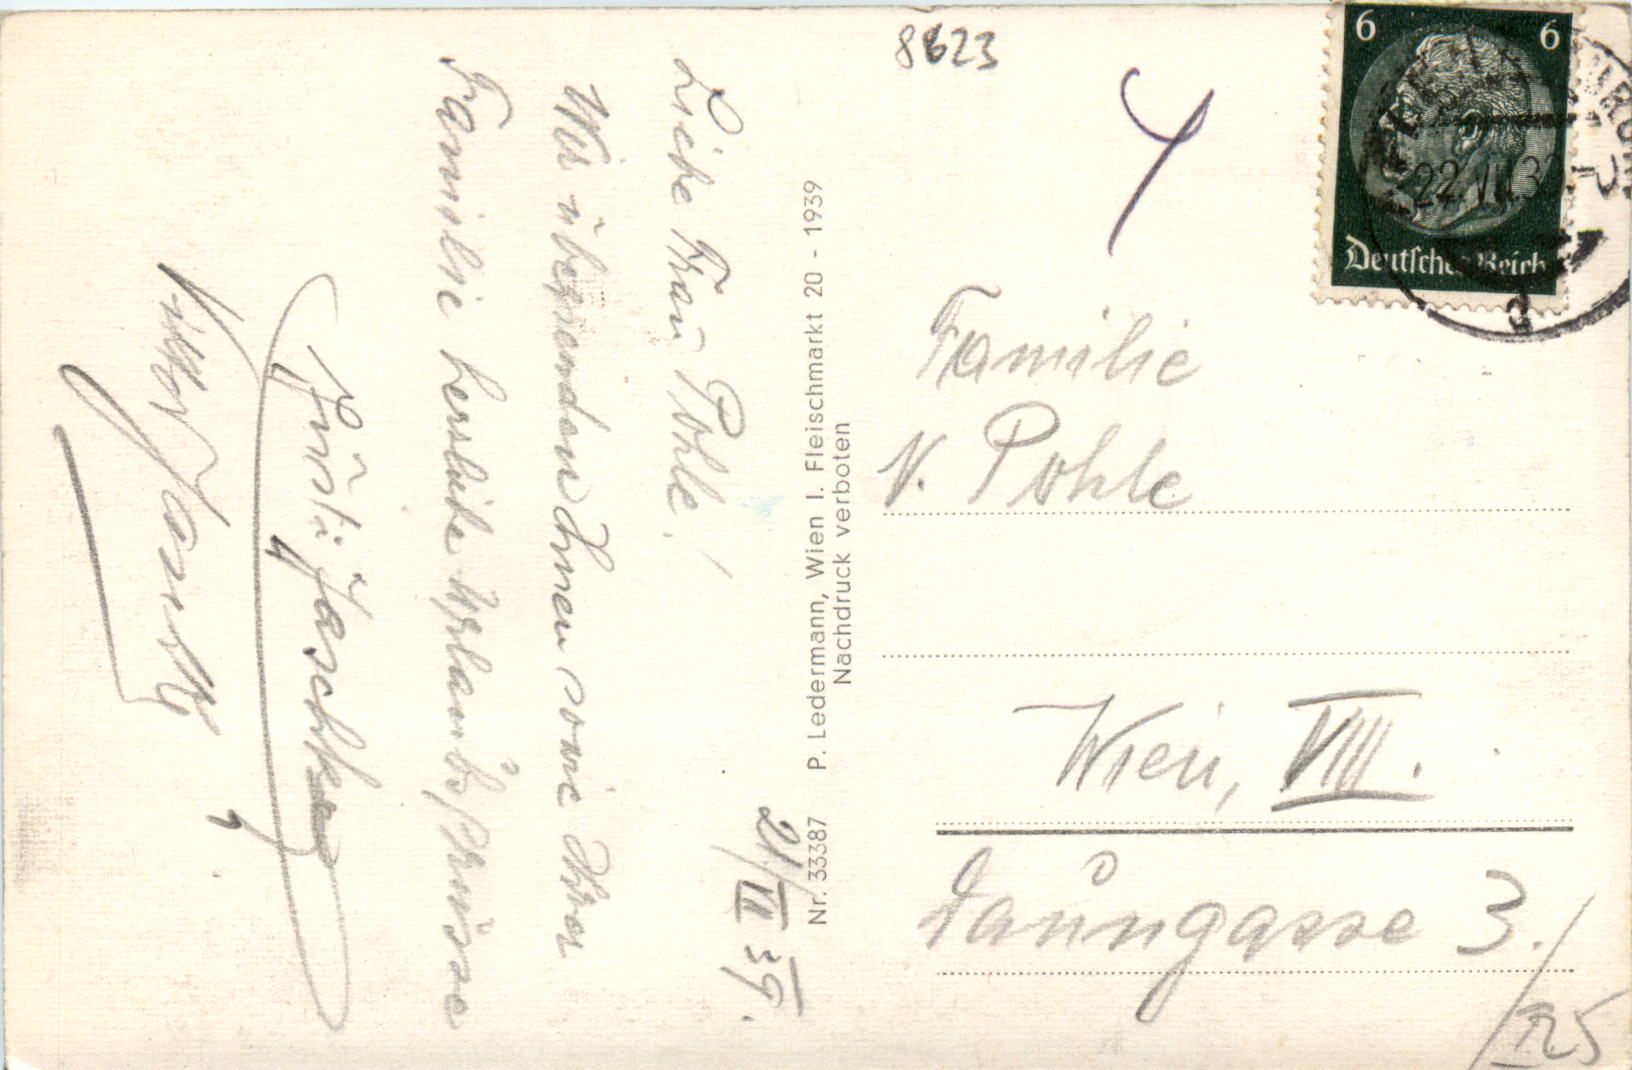 21/VII 39.
Liebe Frau Pohle!
Wir übersenden Ihnen sowie Ihrer
Familie herzliche Urlaubsgrüsse
Jaschke
Nr. 33387 P. Ledermann, Wien I. Fleischmarkt 20 - 1939
Nachdruck verboten
8623
6 6
22.VII.39
Deutsches Reich
a
Familie
V. Pohle
Wien, VIII.
Daungasse 3.
/25